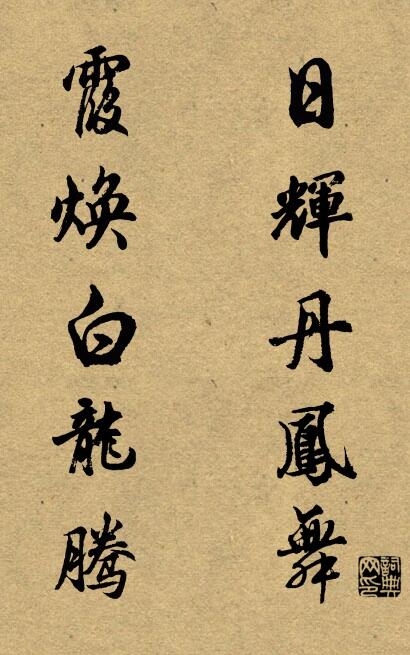 日輝丹鳳舞
霞煥白龍騰
詞典網印